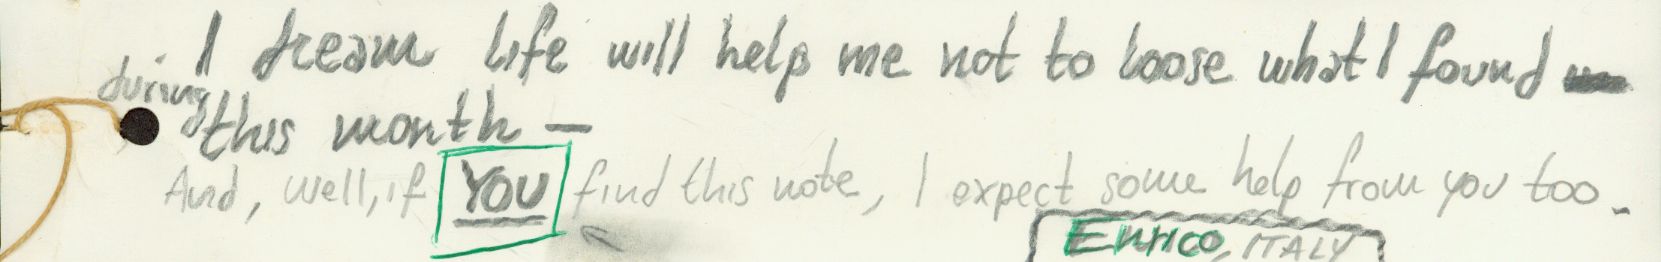 I dream life will help me not to loose what I found
during this month —
And, well, if YOU find this note, I expect some help from you too.
Enrico, ITALY